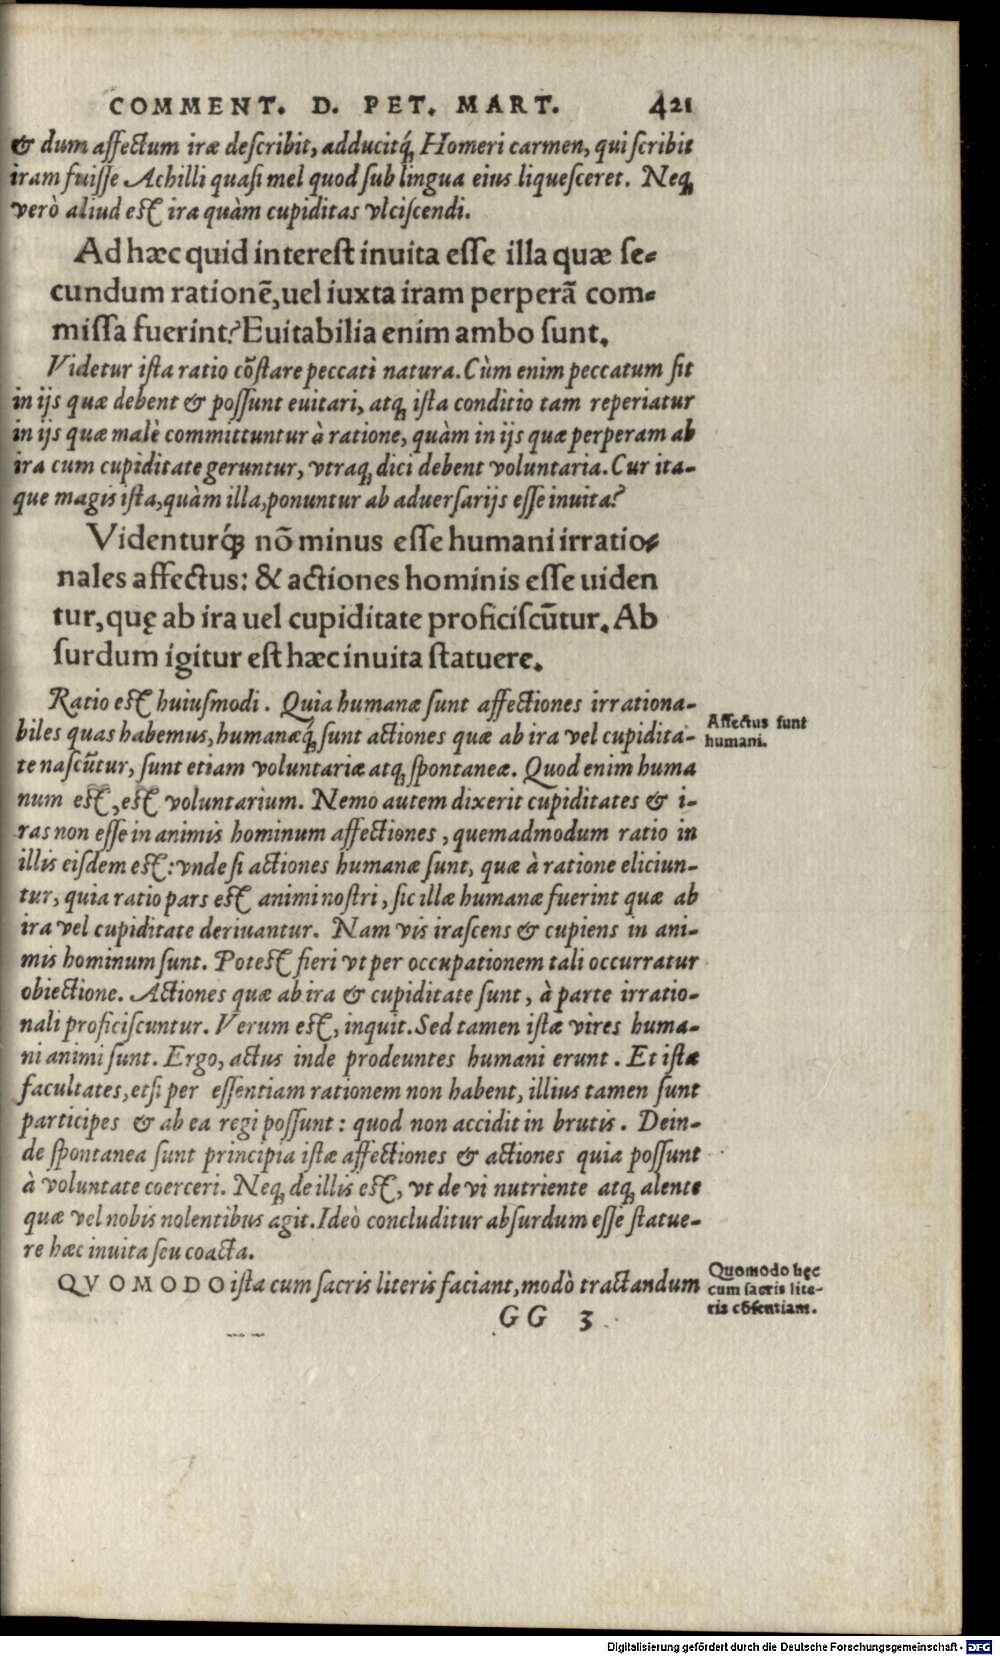 COMMENT. D. PET. MART. 421
& dum affectum iræ deſcribit, adducitq́; Homeri carmen, qui ſcribit
iram fuiſſe Achilli quaſi mel quod ſub lingua eius liqueſceret. Neq;
verò aliud eſt ira quàm cupiditas vlciſcendi.
Ad hæc quid intereſt inuita eſſe illa quæ ſe-
cundum rationẽ, uel iuxta iram perperã com-
miſſa fuerint? Euitabilia enim ambo ſunt.
Videtur iſta ratio cõſtare peccati natura. Cùm enim peccatum ſit
in ijs quæ debent & poſſunt euitari, atq; iſta conditio tam reperiatur
in ijs quæ malè committuntur à ratione, quàm in ijs quæ perperam ab
ira cum cupiditate geruntur, vtraq; dici debent voluntaria. Cur ita-
que magis iſta, quàm illa, ponuntur ab aduerſarijs eſſe inuita?
Videnturq́; nõ minus eſſe humani irratio-
nales affectus: & actiones hominis eſſe uiden
tur, quę ab ira uel cupiditate proficiſcũtur. Ab
ſurdum igitur eſt hæc inuita ſtatuere.
Ratio eſt huiuſmodi. Quia humanæ ſunt affectiones irrationa-
biles quas habemus, humanæq́; ſunt actiones quæ ab ira vel cupidita-
te naſcũtur, ſunt etiam voluntariæ atq; ſpontaneæ. Quod enim huma
num eſt, eſt voluntarium. Nemo autem dixerit cupiditates & i-
ras non eſſe in animis hominum affectiones, quemadmodum ratio in
illis eiſdem eſt: vnde ſi actiones humanæ ſunt, quæ à ratione eliciun-
tur, quia ratio pars eſt animi noſtri, ſic illæ humanæ fuerint quæ ab
ira vel cupiditate deriuantur. Nam vis iraſcens & cupiens in ani-
mis hominum ſunt. Poteſt fieri vt per occupationem tali occurratur
obiectione. Actiones quæ ab ira & cupiditate ſunt, à parte irratio-
nali proficiſcuntur. Verum eſt, inquit. Sed tamen iſtæ vires huma-
ni animi ſunt. Ergo, actus inde prodeuntes humani erunt. Et iſtæ
facultates, etſi per eſſentiam rationem non habent, illius tamen ſunt
participes & ab ea regi poſſunt: quod non accidit in brutis. Dein-
de ſpontanea ſunt principia iſtæ affectiones & actiones quia poſſunt
à voluntate coerceri. Neq; de illis eſt, vt de vi nutriente atq; alente
quæ vel nobis nolentibus agit. Ideò concluditur abſurdum eſſe ſtatue-
re hæc inuita ſeu coacta.
QVOMODO iſta cum ſacris literis faciant, modò tractandum
GG 3
Affectus ſunt
humani.
Quomodo hęc
cum ſacris lite-
ris cõſentiant.
Digitalisierung gefördert durch die Deutsche Forschungsgemeinschaft - DFG